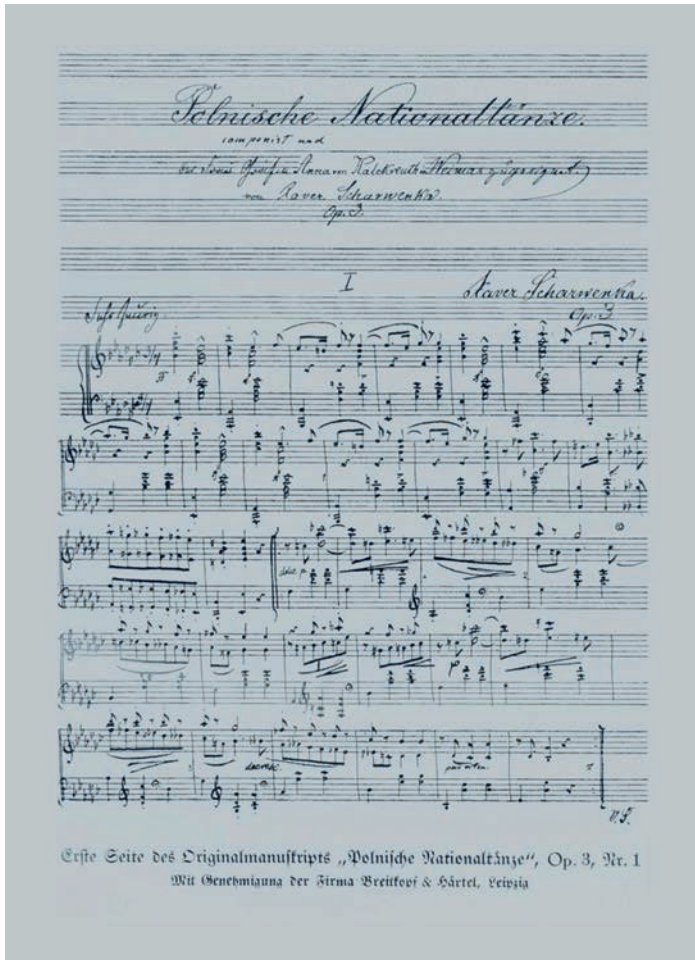 Polnische Nationaltänze.
componirt und
Anna von Kalckreuth Weimar zugeeignet
von Xaver Scharwenka.
Op. 3.
I
Xaver Scharwenka.
Op. 3
Sehr feurig.
dolce p
decresc.
poco riten.
V.S.
Erste Seite des Originalmanuskripts „Polnische Nationaltänze“, Op. 3, Nr. 1
Mit Genehmigung der Firma Breitkopf & Härtel, Leipzig